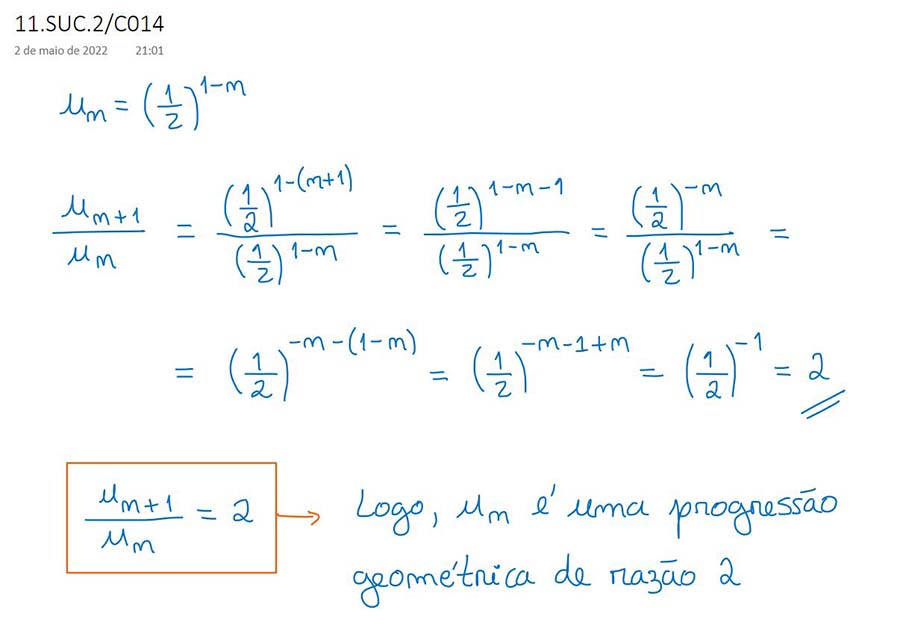 11.SUC.2/C014
2 de maio de 2022 21:01
uₙ = (1/2)^(1-n)
uₙ₊₁/uₙ = (1/2)^(1-(n+1))/(1/2)^(1-n) = (1/2)^(1-n-1)/(1/2)^(1-n) = (1/2)^(-n)/(1/2)^(1-n) =
= (1/2)^(-n-(1-n)) = (1/2)^(-n-1+n) = (1/2)^(-1) = 2
uₙ₊₁/uₙ = 2 → Logo, uₙ é uma progressão
geométrica de razão 2